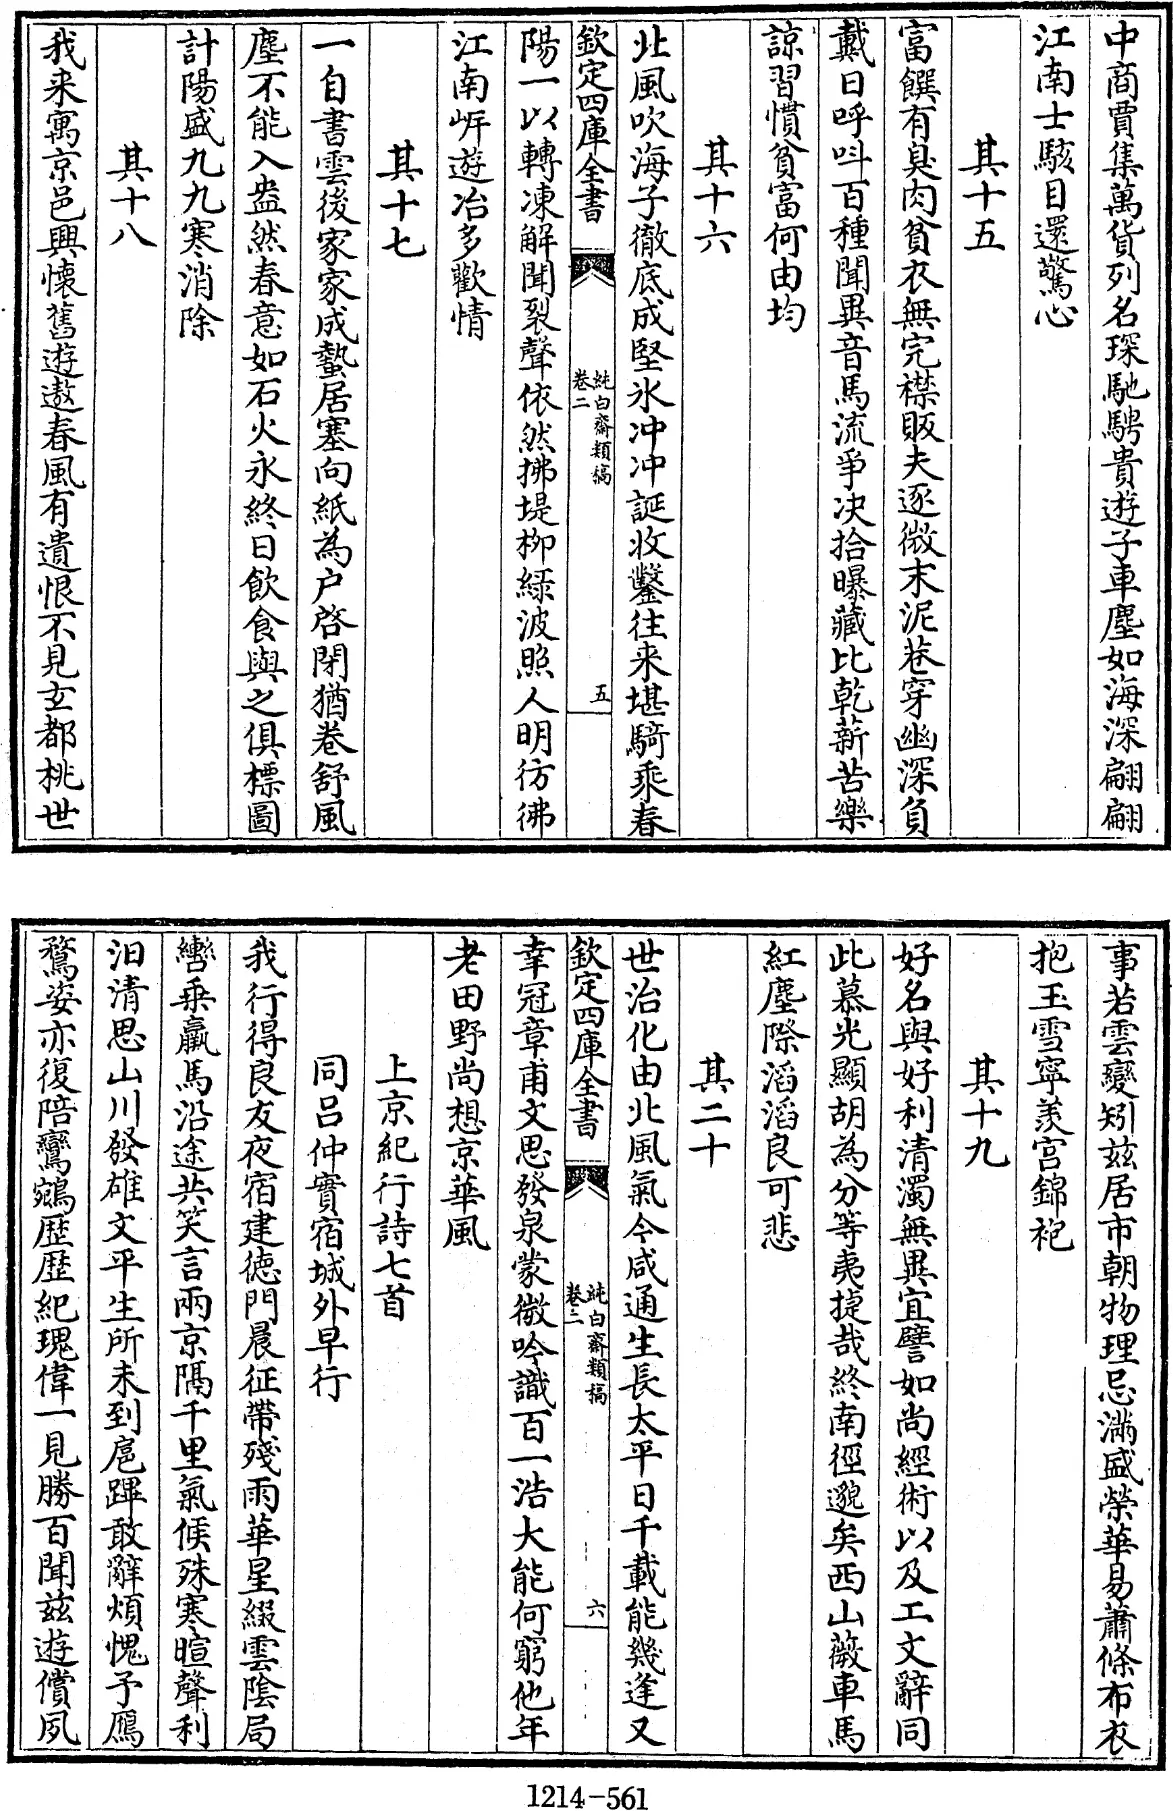 中商賈集萬貨列名琛馳騁貴遊子車塵如海深翩翩
江南士駭目還驚心
其十五
富饌有臭肉貧衣無完襟販夫逐微末泥巷穿幽深負
戴日呼呌百種聞異音馬流爭决拾曝藏比乾薪苦樂
諒習慣貧富何由均
其十六
北風吹海子徹底成堅氷冲冲誕收鑿往来堪騎乘春
欽定四庫全書
純白齋類稿
卷二
五
陽一以轉凍解聞裂聲依然拂堤柳緑波照人明彷彿
江南岸遊冶多歡情
其十七
一自書雲後家家成蟄居塞向紙為户啓閉猶卷舒風
塵不能入盎然春意如石火永終日飲食與之俱標圖
計陽盛九九寒消除
其十八
我来寓京邑興懷舊遊遨春風有遺恨不見玄都桃世
事若雲變矧兹居市朝物理忌滿盛榮華易蕭條布衣
抱玉雪寧羨宫錦袍
其十九
好名與好利清濁無異宜譬如尚經術以及工文辭同
此慕光顯胡為分等夷捷哉終南徑邈矣西山薇車馬
紅塵際滔滔良可悲
其二十
世治化由北風氣今咸通生長太平日千載能幾逢又
欽定四庫全書
純白齋類稿
卷二
六
幸冠章甫文思發泉蒙微吟識百一浩大能何窮他年
老田野尚想京華風
上京紀行詩七首
同吕仲實宿城外早行
我行得良友夜宿建徳門晨征帶殘雨華星綴雲陰局
轡乘羸馬沿途共笑言兩京隔千里氣候殊寒暄聲利
汨清思山川發雄文平生所未到扈蹕敢辭煩愧予鴈
鶩姿亦復陪鸞鵷歴歴紀瑰偉一見勝百聞兹遊償夙
1214-561